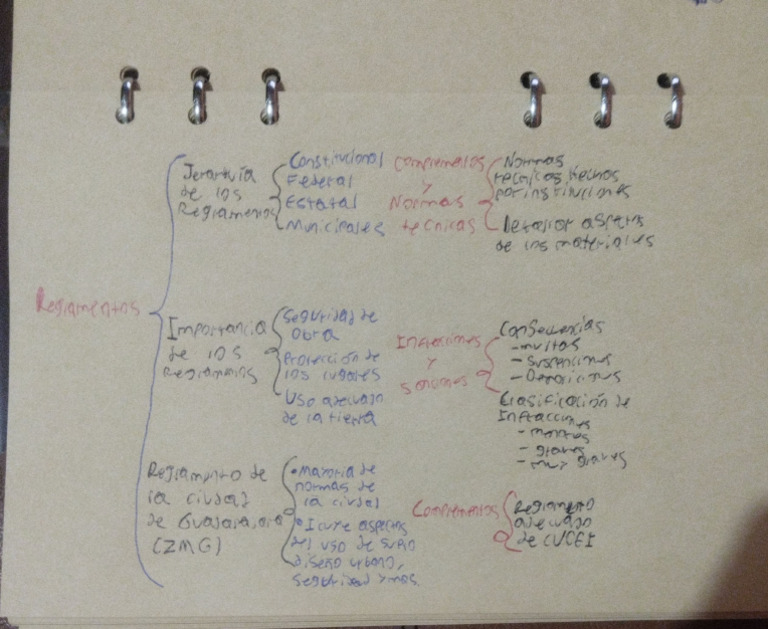 Reglamentos
Jerarquía
de los
Reglamentos
Constitucional
Federal
Estatal
Municipales
Importancia
de los
Reglamentos
Seguridad de
Obra
Protección de
los lugares
Uso adecuado
de la tierra
Reglamento de
la ciudad
de Guadalajara
(ZMG)
• Mayoria de
normas de
la ciudad
• Icluye aspectos
del uso de suelo
diseño urbano,
seguridad y mas.
Complementos
y
Normas
tecnicas
Normas
tecnicas hechas
por instituciones
Detallar aspectos
de los materiales
Infracciones
y
Consecuencias
- multas
- Suspenciones
Clasificación de
Infracciones
- menores
- graves
- muy graves
Complementos
Reglamento
adecuado
de CUCEI